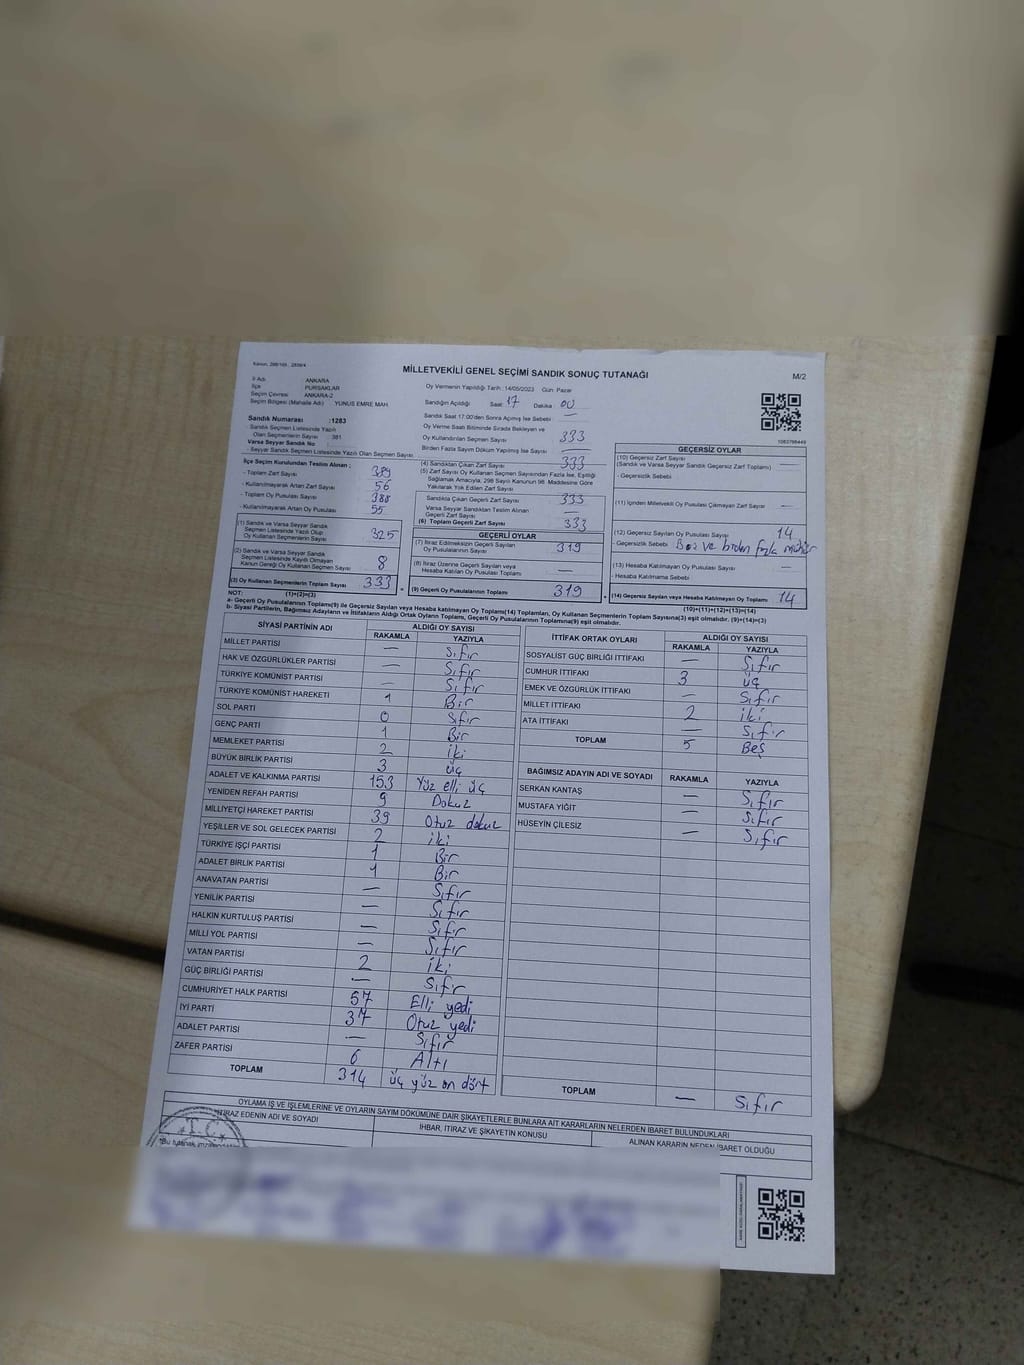 Kanun, 298/105 , 2839/4
MİLLETVEKİLİ GENEL SEÇİMİ SANDIK SONUÇ TUTANAĞI
M/2
İl Adı ANKARA
İlçe PURSAKLAR
Seçim Çevresi ANKARA-2
Seçim Bölgesi (Mahalle Adı) YUNUS EMRE MAH.
Oy Vermenin Yapıldığı Tarih : 14/05/2023 Gün: Pazar
Sandığın Açıldığı Saat: 17 Dakika: 00
Sandık Saat 17:00'den Sonra Açılmış İse Sebebi —
Oy Verme Saati Bitiminde Sırada Bekleyen ve
Oy Kullandırılan Seçmen Sayısı 333
Birden Fazla Sayım Döküm Yapılmış İse Sayısı
Sandık Numarası :1283
- Sandık Seçmen Listesinde Yazılı
Olan Seçmenlerin Sayısı :381
Varsa Seyyar Sandık No
- Seyyar Sandık Seçmen Listesinde Yazılı Olan Seçmen Sayısı
1083798449
İlçe Seçim Kurulundan Teslim Alınan ;
- Toplam Zarf Sayısı 389
- Kullanılmayarak Artan Zarf Sayısı 56
- Toplam Oy Pusulası Sayısı 388
- Kullanılmayarak Artan Oy Pusulası 55
(1) Sandık ve Varsa Seyyar Sandık
Seçmen Listesinde Yazılı Olup
Oy Kullanan Seçmenlerin Sayısı 325
(2) Sandık ve Varsa Seyyar Sandık
Seçmen Listesinde Kayıtlı Olmayan
Kanun Gereği Oy Kullanan Seçmen Sayısı 8
(3) Oy Kullanan Seçmenlerin Toplam Sayısı 333
(1)+(2)=(3)
(4) Sandıktan Çıkan Zarf Sayısı 333
(5) Zarf Sayısı Oy Kullanan Seçmen Sayısından Fazla İse, Eşitliği
Sağlamak Amacıyla, 298 Sayılı Kanunun 98. Maddesine Göre
Yakılarak Yok Edilen Zarf Sayısı —
Sandıkta Çıkan Geçerli Zarf Sayısı 333
Varsa Seyyar Sandıktan Teslim Alınan
Geçerli Zarf Sayısı —
(6) Toplam Geçerli Zarf Sayısı 333
GEÇERLİ OYLAR
(7) İtiraz Edilmeksizin Geçerli Sayılan
Oy Pusulalarının Sayısı 319
(8) İtiraz Üzerine Geçerli Sayılan veya
Hesaba Katılan Oy Pusulası Toplamı —
(9) Geçerli Oy Pusulalarının Toplamı 319
GEÇERSİZ OYLAR
(10) Geçersiz Zarf Sayısı
(Sandık ve Varsa Seyyar Sandık Geçersiz Zarf Toplamı) —
- Geçersizlik Sebebi
(11) İçinden Milletvekili Oy Pusulası Çıkmayan Zarf Sayısı —
(12) Geçersiz Sayılan Oy Pusulası Sayısı 14
- Geçersizlik Sebebi Boş ve birden fazla mühür
(13) Hesaba Katılmayan Oy Pusulası Sayısı —
- Hesaba Katılmama Sebebi
(14) Geçersiz Sayılan veya Hesaba Katılmayan Oy Toplamı 14
(10)+(11)+(12)+(13)=(14)
NOT:
a- Geçerli Oy Pusulalarının Toplamı(9) ile Geçersiz Sayılan veya Hesaba katılmayan Oy Toplamı(14) Toplamları, Oy Kullanan Seçmenlerin Toplam Sayısına(3) eşit olmalıdır. (9)+(14)=(3)
b- Siyasi Partilerin, Bağımsız Adayların ve İttifakların Aldığı Ortak Oyların Toplamı, Geçerli Oy Pusulalarının Toplamına(9) eşit olmalıdır.
SİYASİ PARTİNİN ADI ALDIĞI OY SAYISI
RAKAMLA YAZIYLA
MİLLET PARTİSİ — Sıfır
HAK VE ÖZGÜRLÜKLER PARTİSİ — Sıfır
TÜRKİYE KOMÜNİST PARTİSİ — Sıfır
TÜRKİYE KOMÜNİST HAREKETİ 1 Bir
SOL PARTİ 0 Sıfır
GENÇ PARTİ 1 Bir
MEMLEKET PARTİSİ 2 iki
BÜYÜK BİRLİK PARTİSİ 3 üç
ADALET VE KALKINMA PARTİSİ 153 Yüz elli üç
YENİDEN REFAH PARTİSİ 9 Dokuz
MİLLİYETÇİ HAREKET PARTİSİ 39 Otuz dokuz
YEŞİLLER VE SOL GELECEK PARTİSİ 2 iki
TÜRKİYE İŞÇİ PARTİSİ 1 Bir
ADALET BİRLİK PARTİSİ 1 Bir
ANAVATAN PARTİSİ — Sıfır
YENİLİK PARTİSİ — Sıfır
HALKIN KURTULUŞ PARTİSİ — Sıfır
MİLLİ YOL PARTİSİ — Sıfır
VATAN PARTİSİ 2 iki
GÜÇ BİRLİĞİ PARTİSİ — Sıfır
CUMHURİYET HALK PARTİSİ 57 Elli yedi
İYİ PARTİ 37 Otuz yedi
ADALET PARTİSİ — Sıfır
ZAFER PARTİSİ 6 Altı
TOPLAM 314 üç yüz on dört
İTTİFAK ORTAK OYLARI ALDIĞI OY SAYISI
RAKAMLA YAZIYLA
SOSYALİST GÜÇ BİRLİĞİ İTTİFAKI — Sıfır
CUMHUR İTTİFAKI 3 üç
EMEK VE ÖZGÜRLÜK İTTİFAKI — Sıfır
MİLLET İTTİFAKI 2 iki
ATA İTTİFAKI — Sıfır
TOPLAM 5 Beş
BAĞIMSIZ ADAYIN ADI VE SOYADI ALDIĞI OY SAYISI
RAKAMLA YAZIYLA
SERKAN KANTAŞ — Sıfır
MUSTAFA YİĞİT — Sıfır
HÜSEYİN ÇİLESİZ — Sıfır
TOPLAM — Sıfır
OYLAMA İŞ VE İŞLEMLERİNE VE OYLARIN SAYIM DÖKÜMÜNE DAİR ŞİKAYETLERLE BUNLARA AİT KARARLARIN NELERDEN İBARET BULUNDUKLARI
İTİRAZ EDENİN ADI VE SOYADI
İHBAR, İTİRAZ VE ŞİKAYETİN KONUSU
ALINAN KARARIN NEDEN İBARET OLDUĞU
T.C.
"Bu tutanak